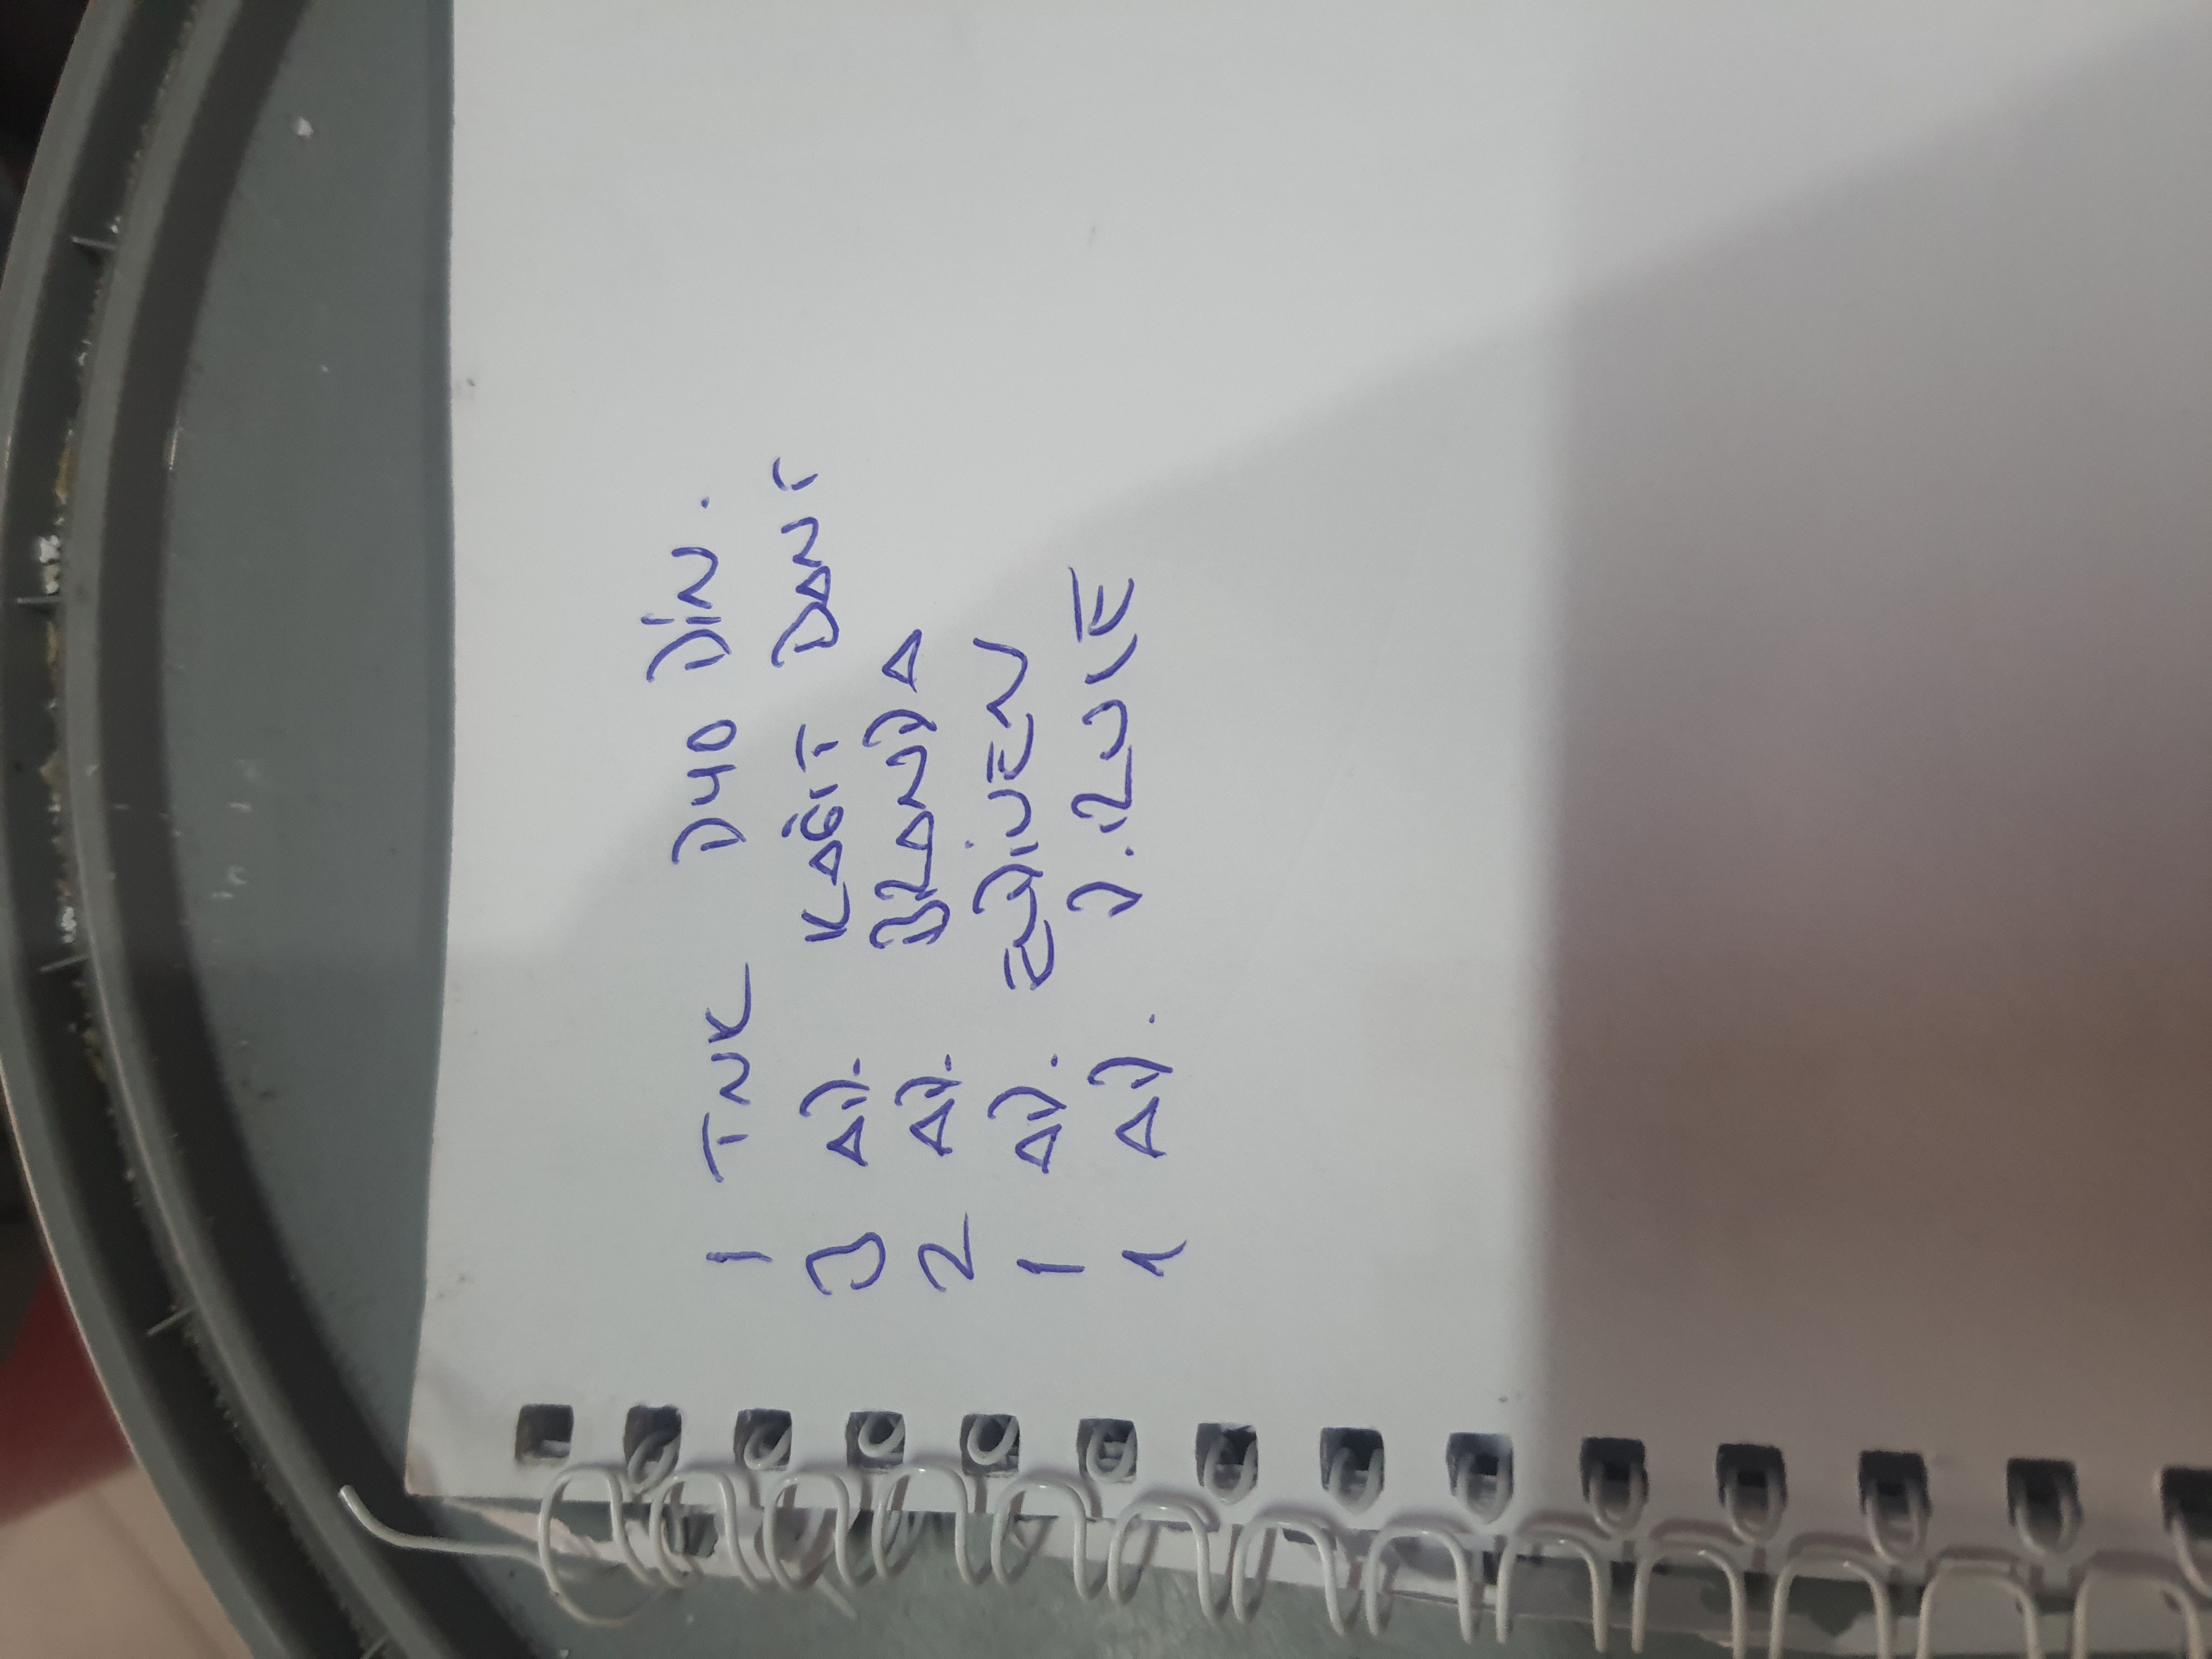 1 TNK D40 DİN.
3 AD. KAĞIT BANT
2 AD. BRANDA
1 AD. ELDİVEN
1 AD. D.RULE